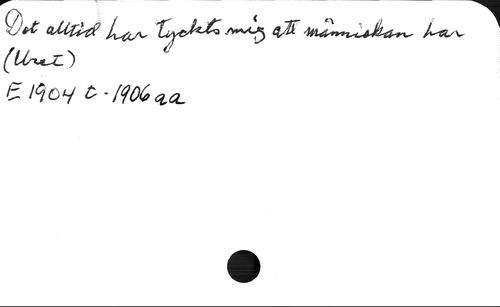 Det alltid har tyckts mig att människan har
(Uret)
E 1904 t - 1906 aa